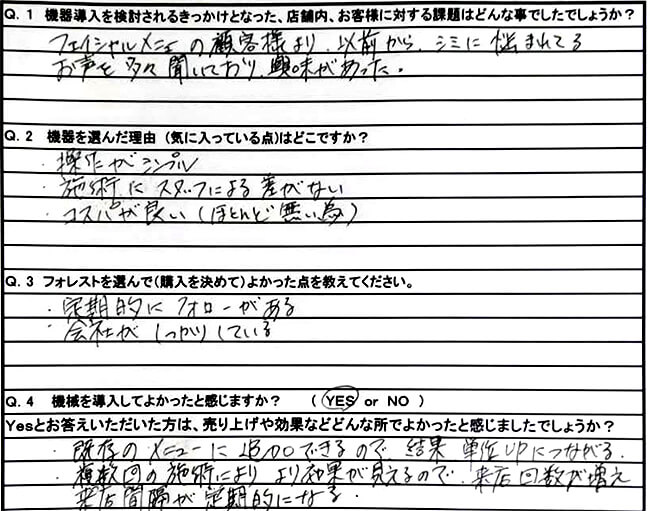 Q. 1 機器導入を検討されるきっかけとなった、店舗内、お客様に対する課題はどんな事でしたでしょうか?
フェイシャルメニューの顧客様より、以前から、シミに悩まれてる
お声を多々聞いており、興味があった。
Q. 2 機器を選んだ理由 (気に入っている点)はどこですか?
・操作がシンプル
・施術にスタッフによる差がない
・コスパが良い(ほとんど無い為)
Q. 3 フォレストを選んで(購入を決めて)よかった点を教えてください。
・定期的にフォローがある
・会社がしっかりしている
Q. 4 機械を導入してよかったと感じますか? ( YES or NO )
Yesとお答えいただいた方は、売り上げや効果などどんな所でよかったと感じましたでしょうか?
・既存のメニューに追加できるので、結果 単価UPにつながる.
・複数回の施術により より効果が見えるので、来店回数が増え
来店間隔が定期的になる.